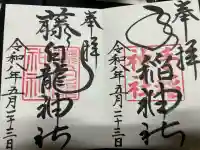 奉拝
稲神社
令和八年五月二十三日
奉拝
藤白龍神社
令和八年五月二十三日